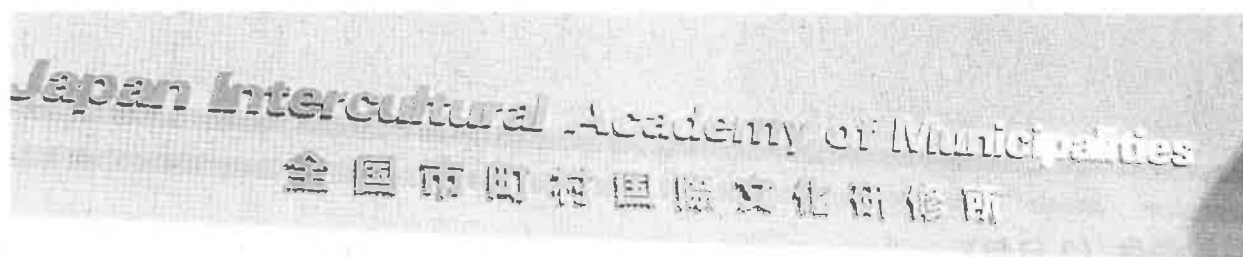 Japan Intercultural Academy of Municipalities
全国市町村国際文化研修所